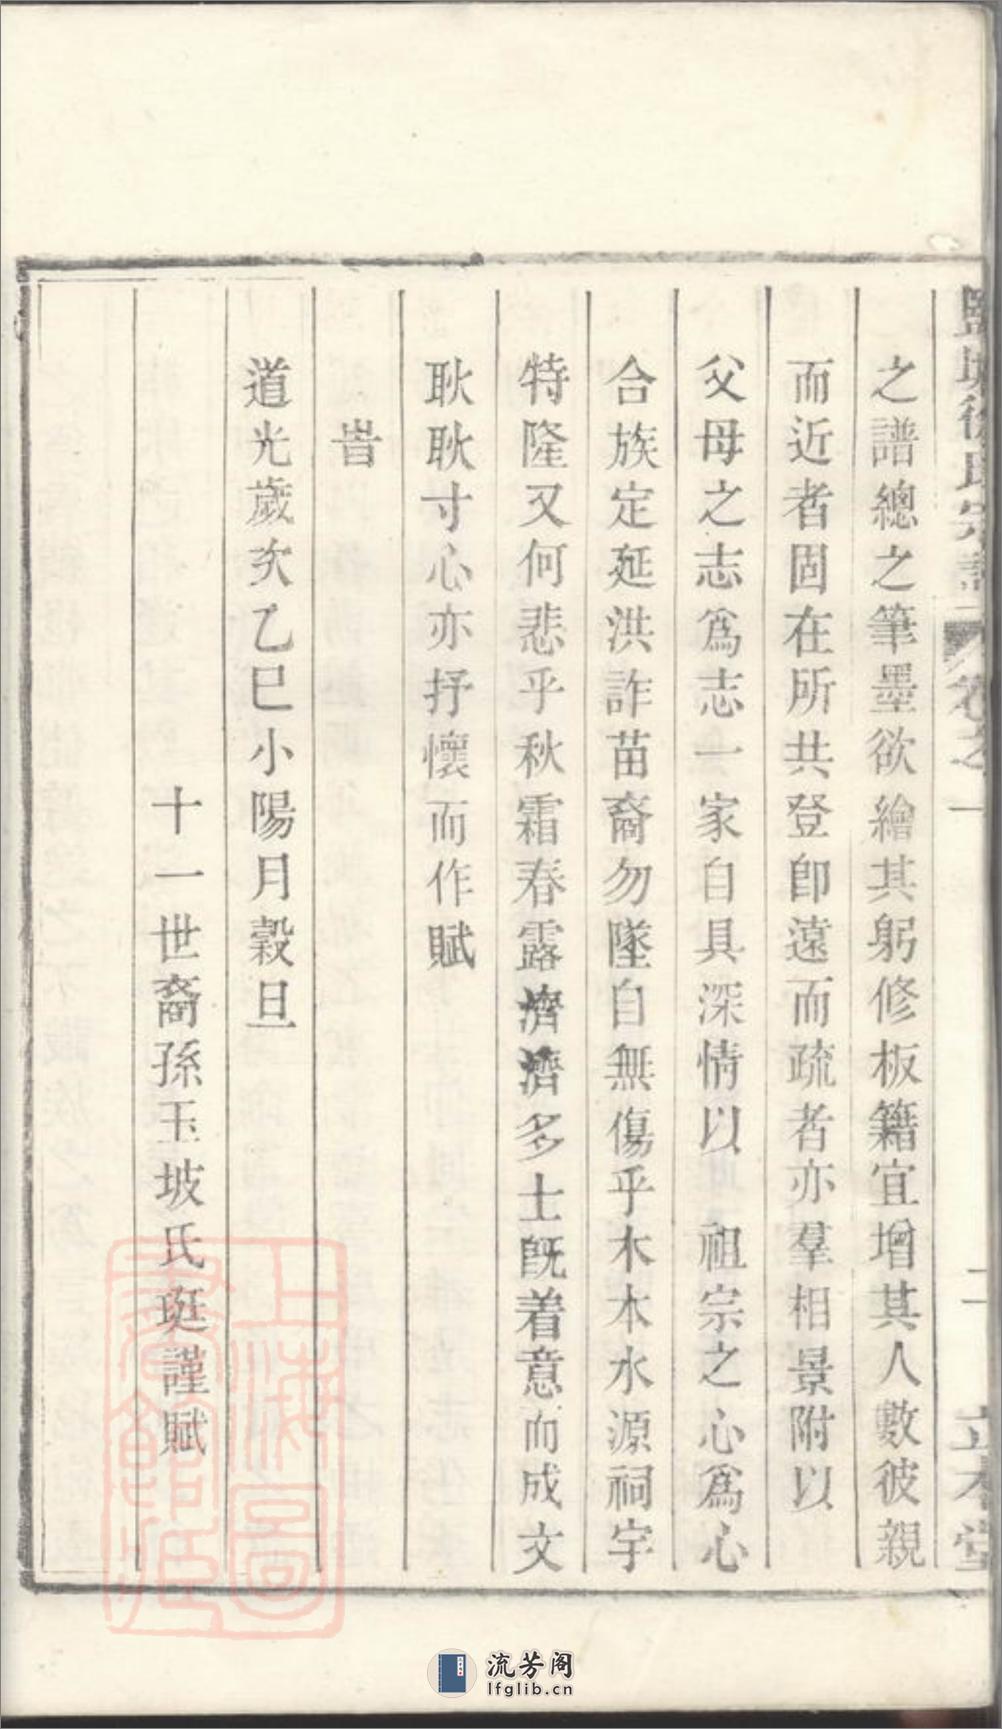 鹽城徐氏宗譜 卷之一 二 立本堂
之譜總之筆墨欲繪其躬修板籍宜增其人數彼親
而近者固在所共登卽遠而疏者亦羣相景附以
父母之志爲志一家自具深情以 祖宗之心爲心
合族定延洪詐苗裔勿墜自無傷乎木本水源祠宇
特隆又何悲乎秋霜春露濟濟多士旣着意而成文
耿耿寸心亦抒懷而作賦
旹
道光歲次乙巳小陽月穀旦
十一世裔孫玉坡氏珽謹賦
上海圖書館藏
流芳阁
lfglib.cn